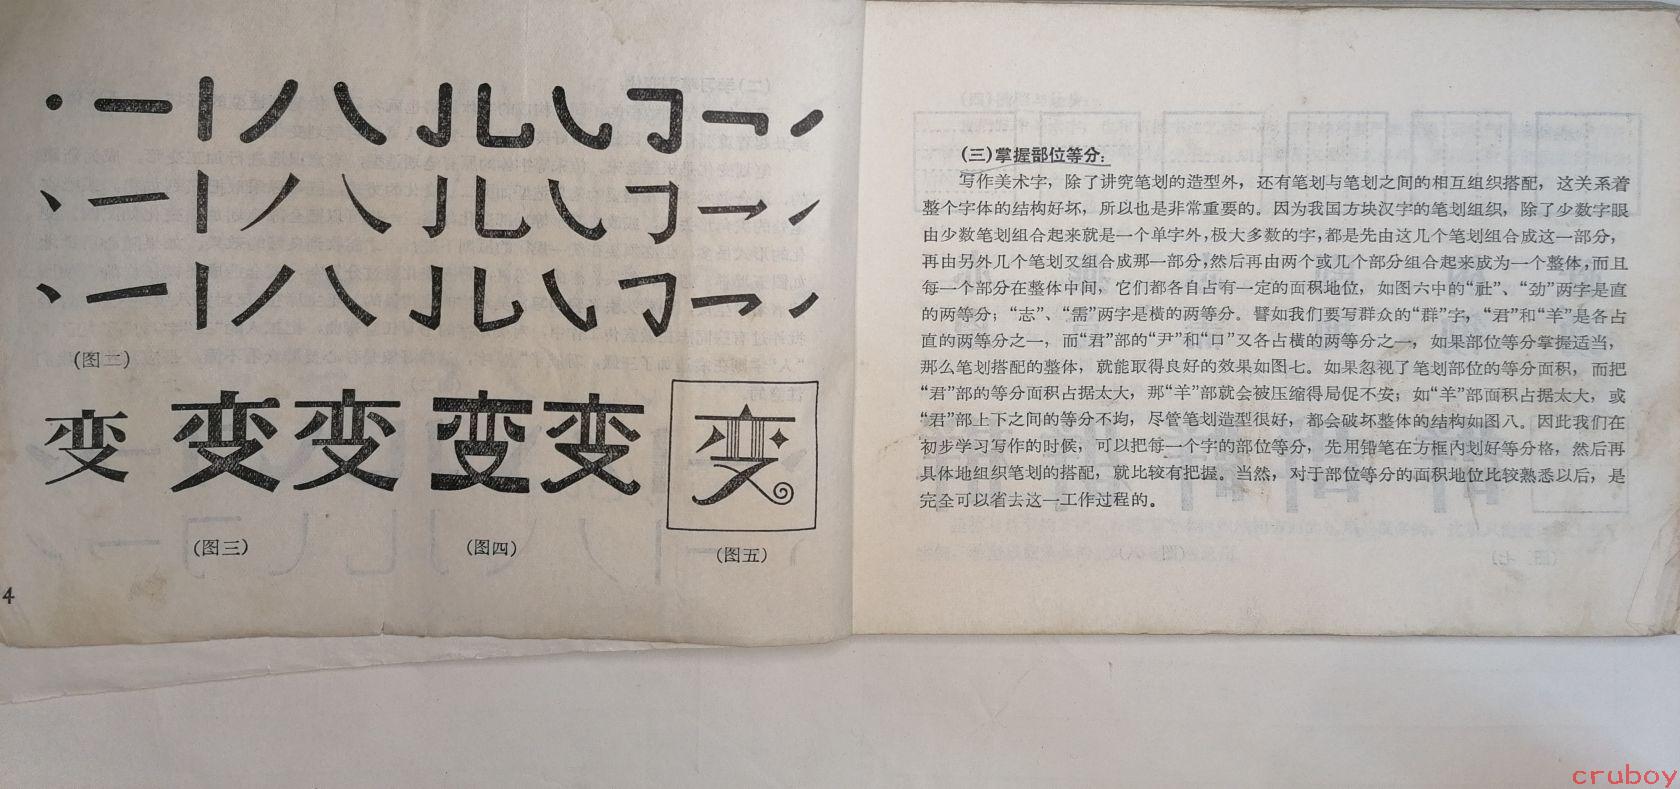 (图二)
变 变 变 变 变 变
(图三)
(图四)
(图五)
4
(三)掌握部位等分：
写作美术字，除了讲究笔划的造型外，还有笔划与笔划之间的相互组织搭配，这关系着
整个字体的结构好坏，所以也是非常重要的。因为我国方块汉字的笔划组织，除了少数字眼
由少数笔划组合起来就是一个单字外，极大多数的字，都是先由这几个笔划组合成这一部分，
再由另外几个笔划又组合成那一部分，然后再由两个或几个部分组合起来成为一个整体，而且
每一个部分在整体中间，它们都各自占有一定的面积地位，如图六中的“社”、“劲”两字是直
的两等分；“志”、“需”两字是横的两等分。譬如我们要写群众的“群”字，“君”和“羊”是各占
直的两等分之一，而“君”部的“尹”和“口”又各占横的两等分之一，如果部位等分掌握适当，
那么笔划搭配的整体，就能取得良好的效果如图七。如果忽视了笔划部位的等分面积，而把
“君”部的等分面积占据太大，那“羊”部就会被压缩得局促不安；如“羊”部面积占据太大，或
“君”部上下之间的等分不均，尽管笔划造型很好，都会破坏整体的结构如图八。因此我们在
初步学习写作的时候，可以把每一个字的部位等分，先用铅笔在方框内划好等分格，然后再
具体地组织笔划的搭配，就比较有把握。当然，对于部位等分的面积地位比较熟悉以后，是
完全可以省去这一工作过程的。
cruboy